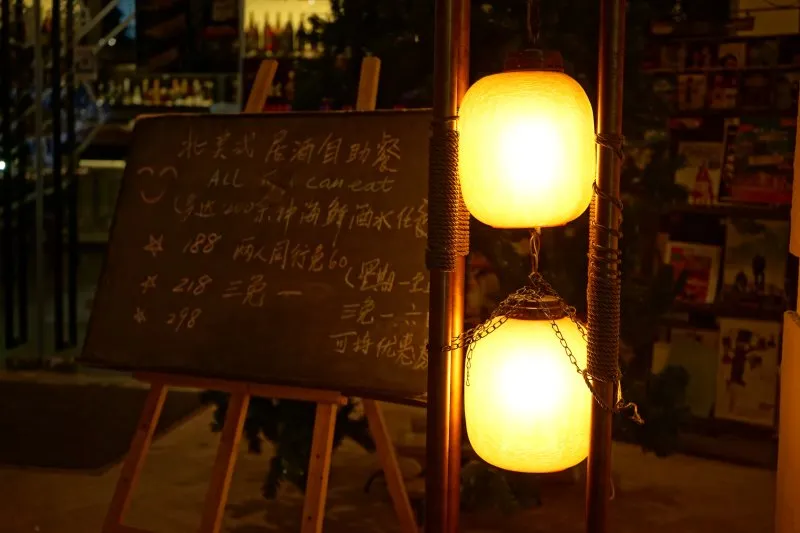 式居酒自助餐
ALL can eat
多达200余种海鲜酒水任
188 两人同行免60
218 三免一 (星期一至
298 三免一 六
可持优惠